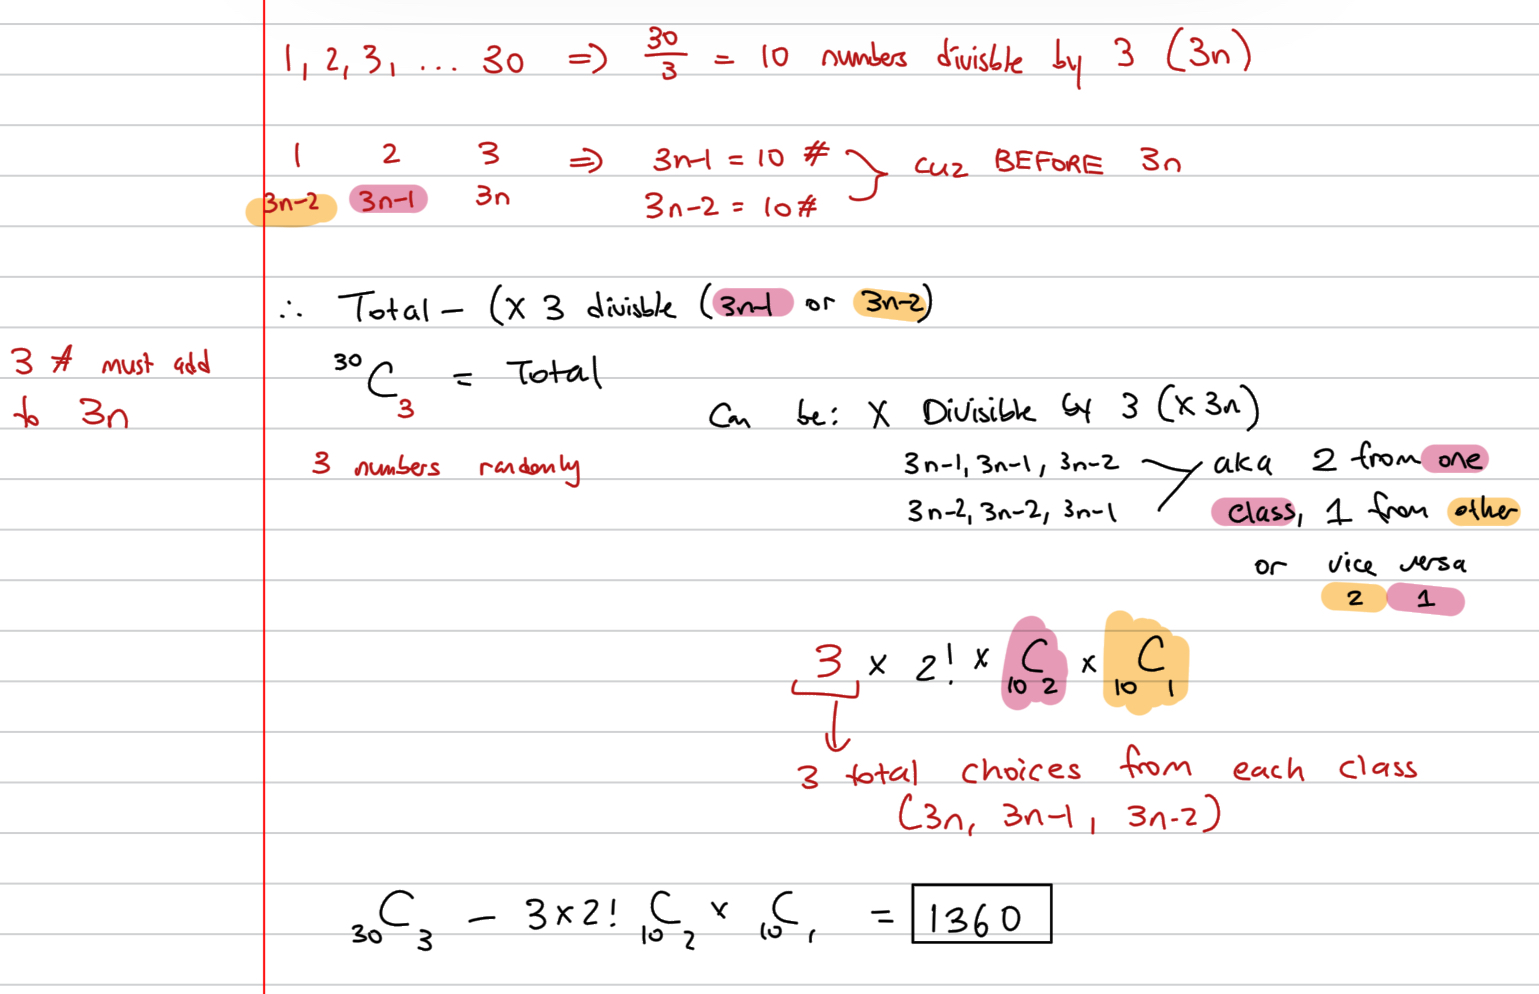 1, 2, 3, ... 30 => 30/3 = 10 numbers divisble by 3 (3n)
1 2 3 => 3n-1 = 10 # } cuz BEFORE 3n
3n-2 3n-1 3n 3n-2 = 10#
∴ Total - (X 3 divisble (3n-1 or 3n-2)
3 # must add
to 3n
30C3 = Total
3 numbers randomly
Can be: X Divisible by 3 (X 3n)
3n-1, 3n-1, 3n-2
3n-2, 3n-2, 3n-1
aka 2 from one
class, 1 from other
or vice versa
2 1
3 x 2! x 10C2 x 10C1
3 total choices from each class
(3n, 3n-1, 3n-2)
30C3 - 3x2! 10C2 x 10C1 = 1360